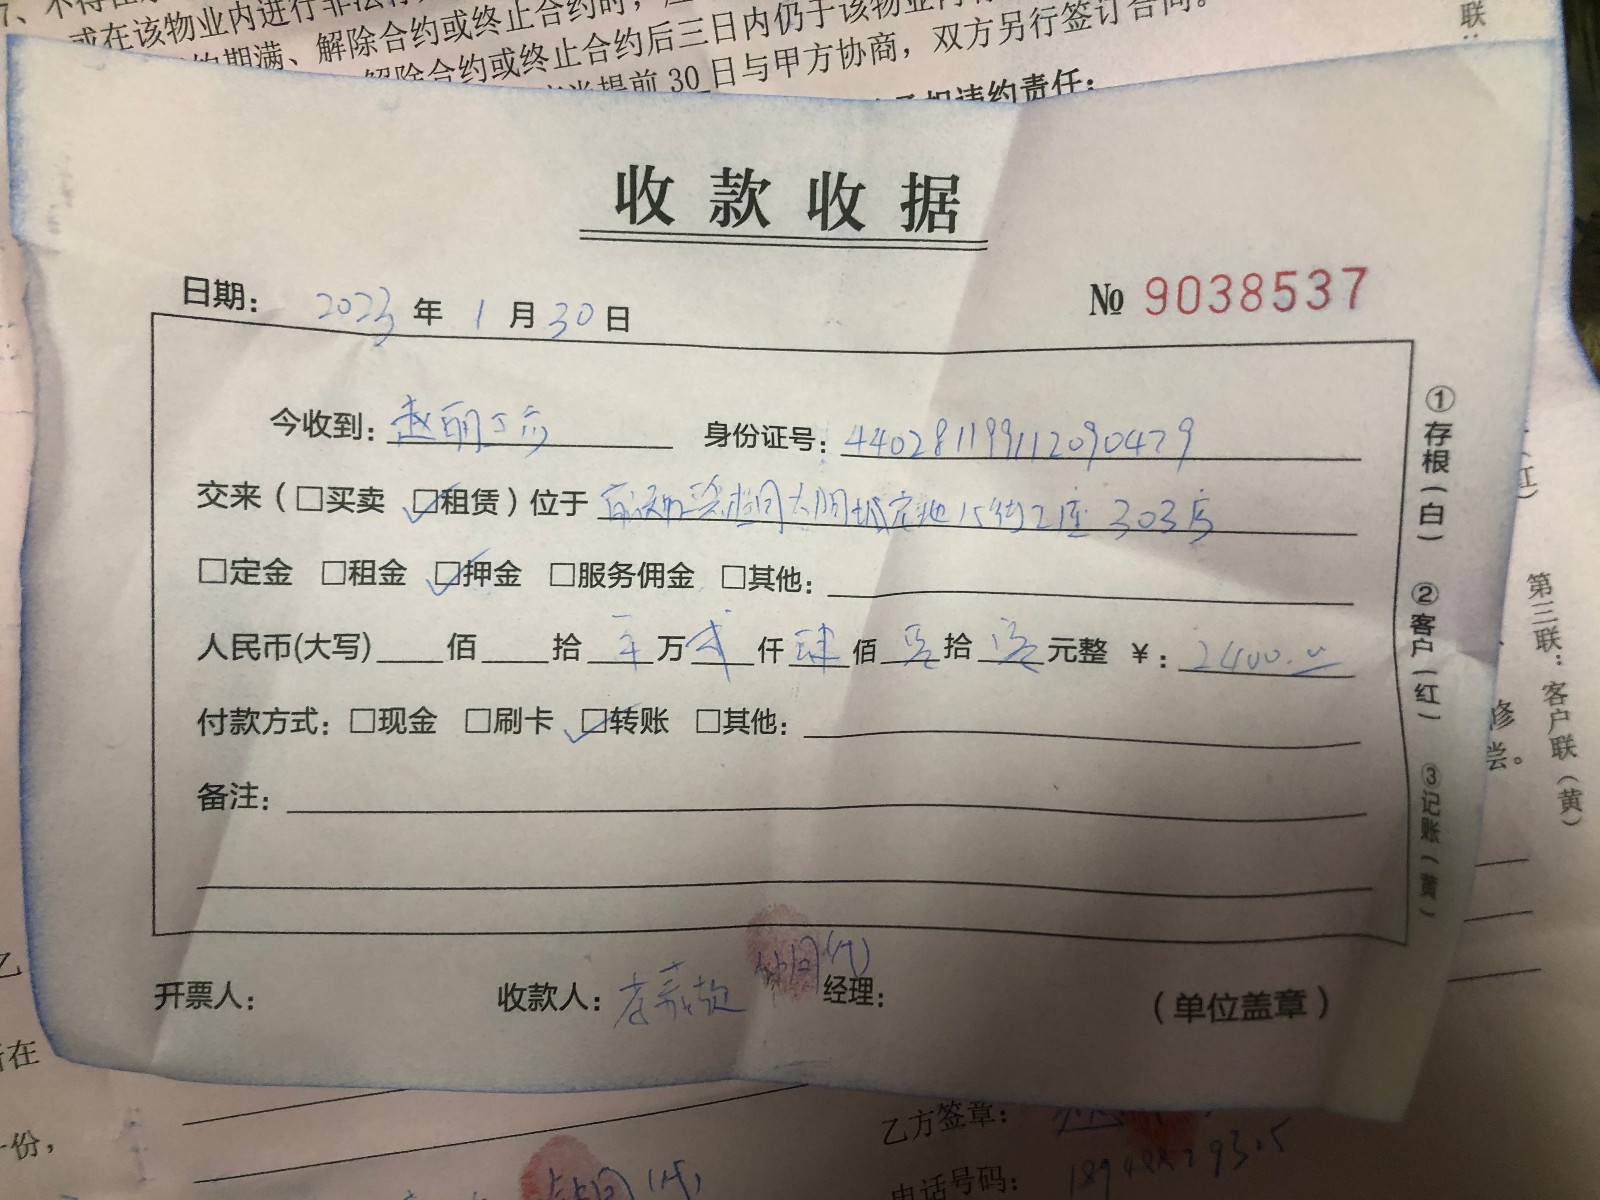 7、不得在
或在该物业内进行非法
约期满、解除合约或终止合约时，
解除合约或终止合约后三日内仍于该物业内
提前30日与甲方协商，双方另行签订合同。
承担违约责任：
联：
收款收据
日期： 2023 年 1 月 30 日
№ 9038537
今收到：赵丽 身份证号：440281199112090479
交来（□买卖 ☑租赁）位于 15街2座 303房
□定金 □租金 ☑押金 □服务佣金 □其他：
人民币(大写) 佰 拾 零 万 贰 仟 肆 佰 零 拾 零 元整 ¥：2400.00
付款方式：□现金 □刷卡 ☑转账 □其他：
备注：
开票人： 收款人：李 钟 (代) 经理： （单位盖章）
①存根（白） ②客户（红） ③记账（黄）
第三联：客户联（黄）
修
尝。
乙
在
份，
乙方签章：
电话号码：
(代)